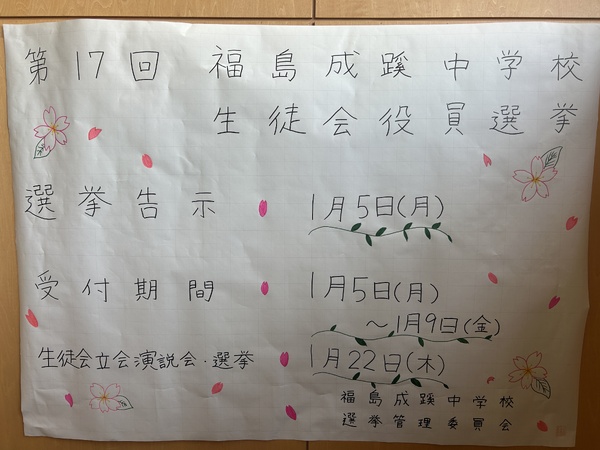 第17回 福島成蹊中学校
生徒会役員選挙
選挙告示 1月5日(月)
受付期間 1月5日(月)
～1月9日(金)
生徒会立会演説会・選挙 1月22日(木)
福島成蹊中学校
選挙管理委員会